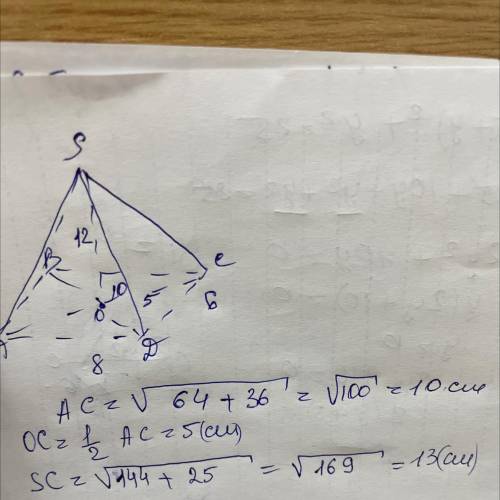 S
12
B
C
10
5
6
O
A
D
8
AC = √64 + 36 = √100 = 10 см
OC = 1/2 AC = 5 (см)
SC = √144 + 25 = √169 = 13 (см)